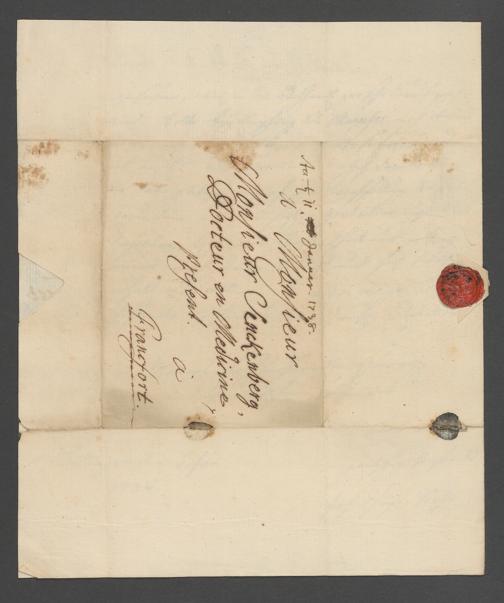 d. 11. Januar. 1738.
A Monsieur
Monsieur Senckenberg,
Docteur en Medicine
present.
à
Francfort.